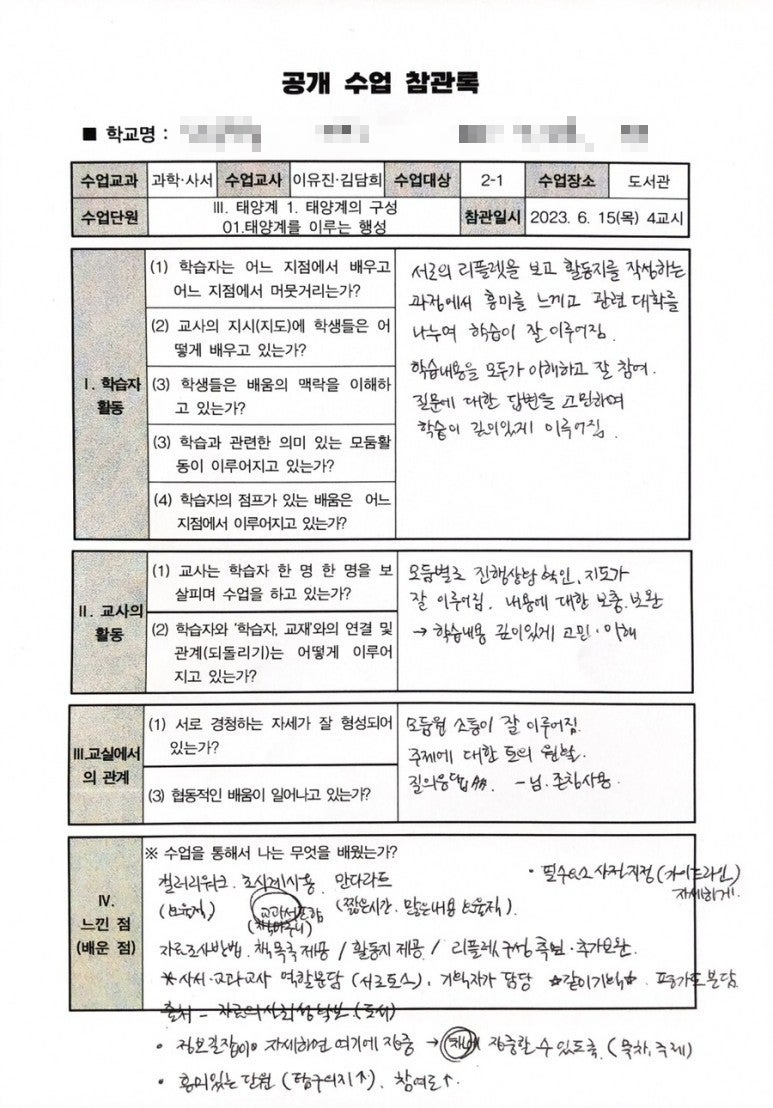 공개 수업 참관록
■ 학교명 :
수업교과 과학·사서 수업교사 이유진·김담희 수업대상 2-1 수업장소 도서관
수업단원 Ⅲ. 태양계 1. 태양계의 구성 참관일시 2023. 6. 15(목) 4교시
01.태양계를 이루는 행성
Ⅰ. 학습자 활동
(1) 학습자는 어느 지점에서 배우고
어느 지점에서 머뭇거리는가?
(2) 교사의 지시(지도)에 학생들은 어
떻게 배우고 있는가?
(3) 학생들은 배움의 맥락을 이해하
고 있는가?
(3) 학습과 관련한 의미 있는 모둠활
동이 이루어지고 있는가?
(4) 학습자의 점프가 있는 배움은 어느
지점에서 이루어지고 있는가?
서로의 리플렛을 보고 활동지를 작성하는
과정에서 흥미를 느끼고 관련 대화를
나누며 학습이 잘 이루어짐.
학습내용을 모두가 이해하고 잘 참여.
질문에 대한 답변을 고민하며
학습이 깊이있게 이루어짐.
Ⅱ. 교사의 활동
(1) 교사는 학습자 한 명 한 명을 보
살피며 수업을 하고 있는가?
(2) 학습자와 '학습자, 교재'와의 연결 및
관계(되돌리기)는 어떻게 이루어
지고 있는가?
모둠별로 진행상담 확인, 지도가
잘 이루어짐. 내용에 대한 보충. 보완
→ 학습내용 깊이있게 고민·이해
Ⅲ.교실에서의 관계
(1) 서로 경청하는 자세가 잘 형성되어
있는가?
(3) 협동적인 배움이 일어나고 있는가?
모둠원 소통이 잘 이루어짐.
주제에 대한 토의 원활.
질의응답 -님. 존칭사용.
Ⅳ. 느낀 점 (배운 점)
※ 수업을 통해서 나는 무엇을 배웠는가?
· 필수요소 사전지정 (가이드라인)
자세하게.
갤러리워크. 초시계사용. 만다라트
교과서포함 (짧은시간. 많은내용
자료조사방법. 책목록제공 / 활동지 제공 / 리플렛 구성
*사서·교과교사 역할분담 (서로 토스). 기획자가 담당 ☆같이기획☆. 평가도 분담
출처 -
· 정보길잡이 자세하면 여기에 집중 → 집중할 수 있도록 (목차, 주제)
· 흥미있는 단원 (탐구의지↑). 참여도↑.